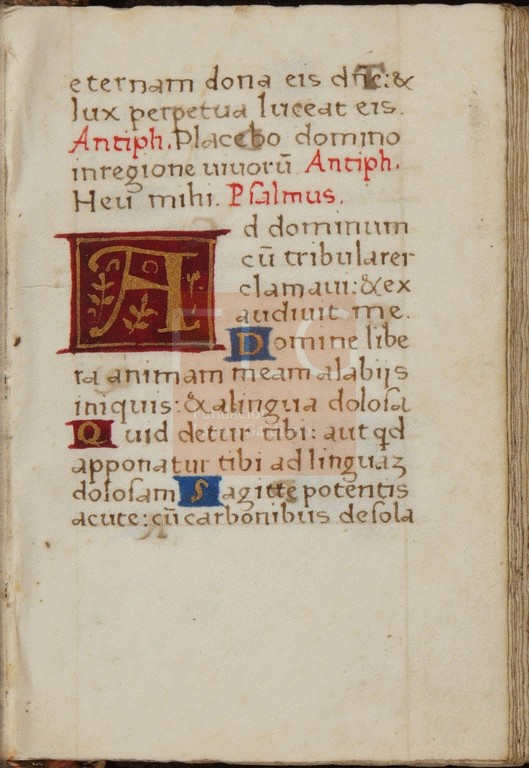 eternam dona eis dñe:&
lux perpetua luceat eis.
Antiph. Placebo domino
in regione uiuorũ Antiph.
Heu mihi. Psalmus.
Ad dominum
cũ tribularer
clamaui: & ex
audiuit me.
Domine libe
ra animam meam alabijs
iniquis: & a lingua dolosa
Quid detur tibi: aut qd
apponatur tibi ad linguaz
dolosam Sagitte potentis
acute: cũ carbonibus desola